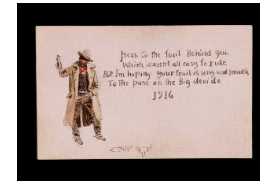 Here's to the trail behind you
Which wasn't all easy to ride
But I'm hoping your trail is long and smooth
To the pass on the Big divide
1916